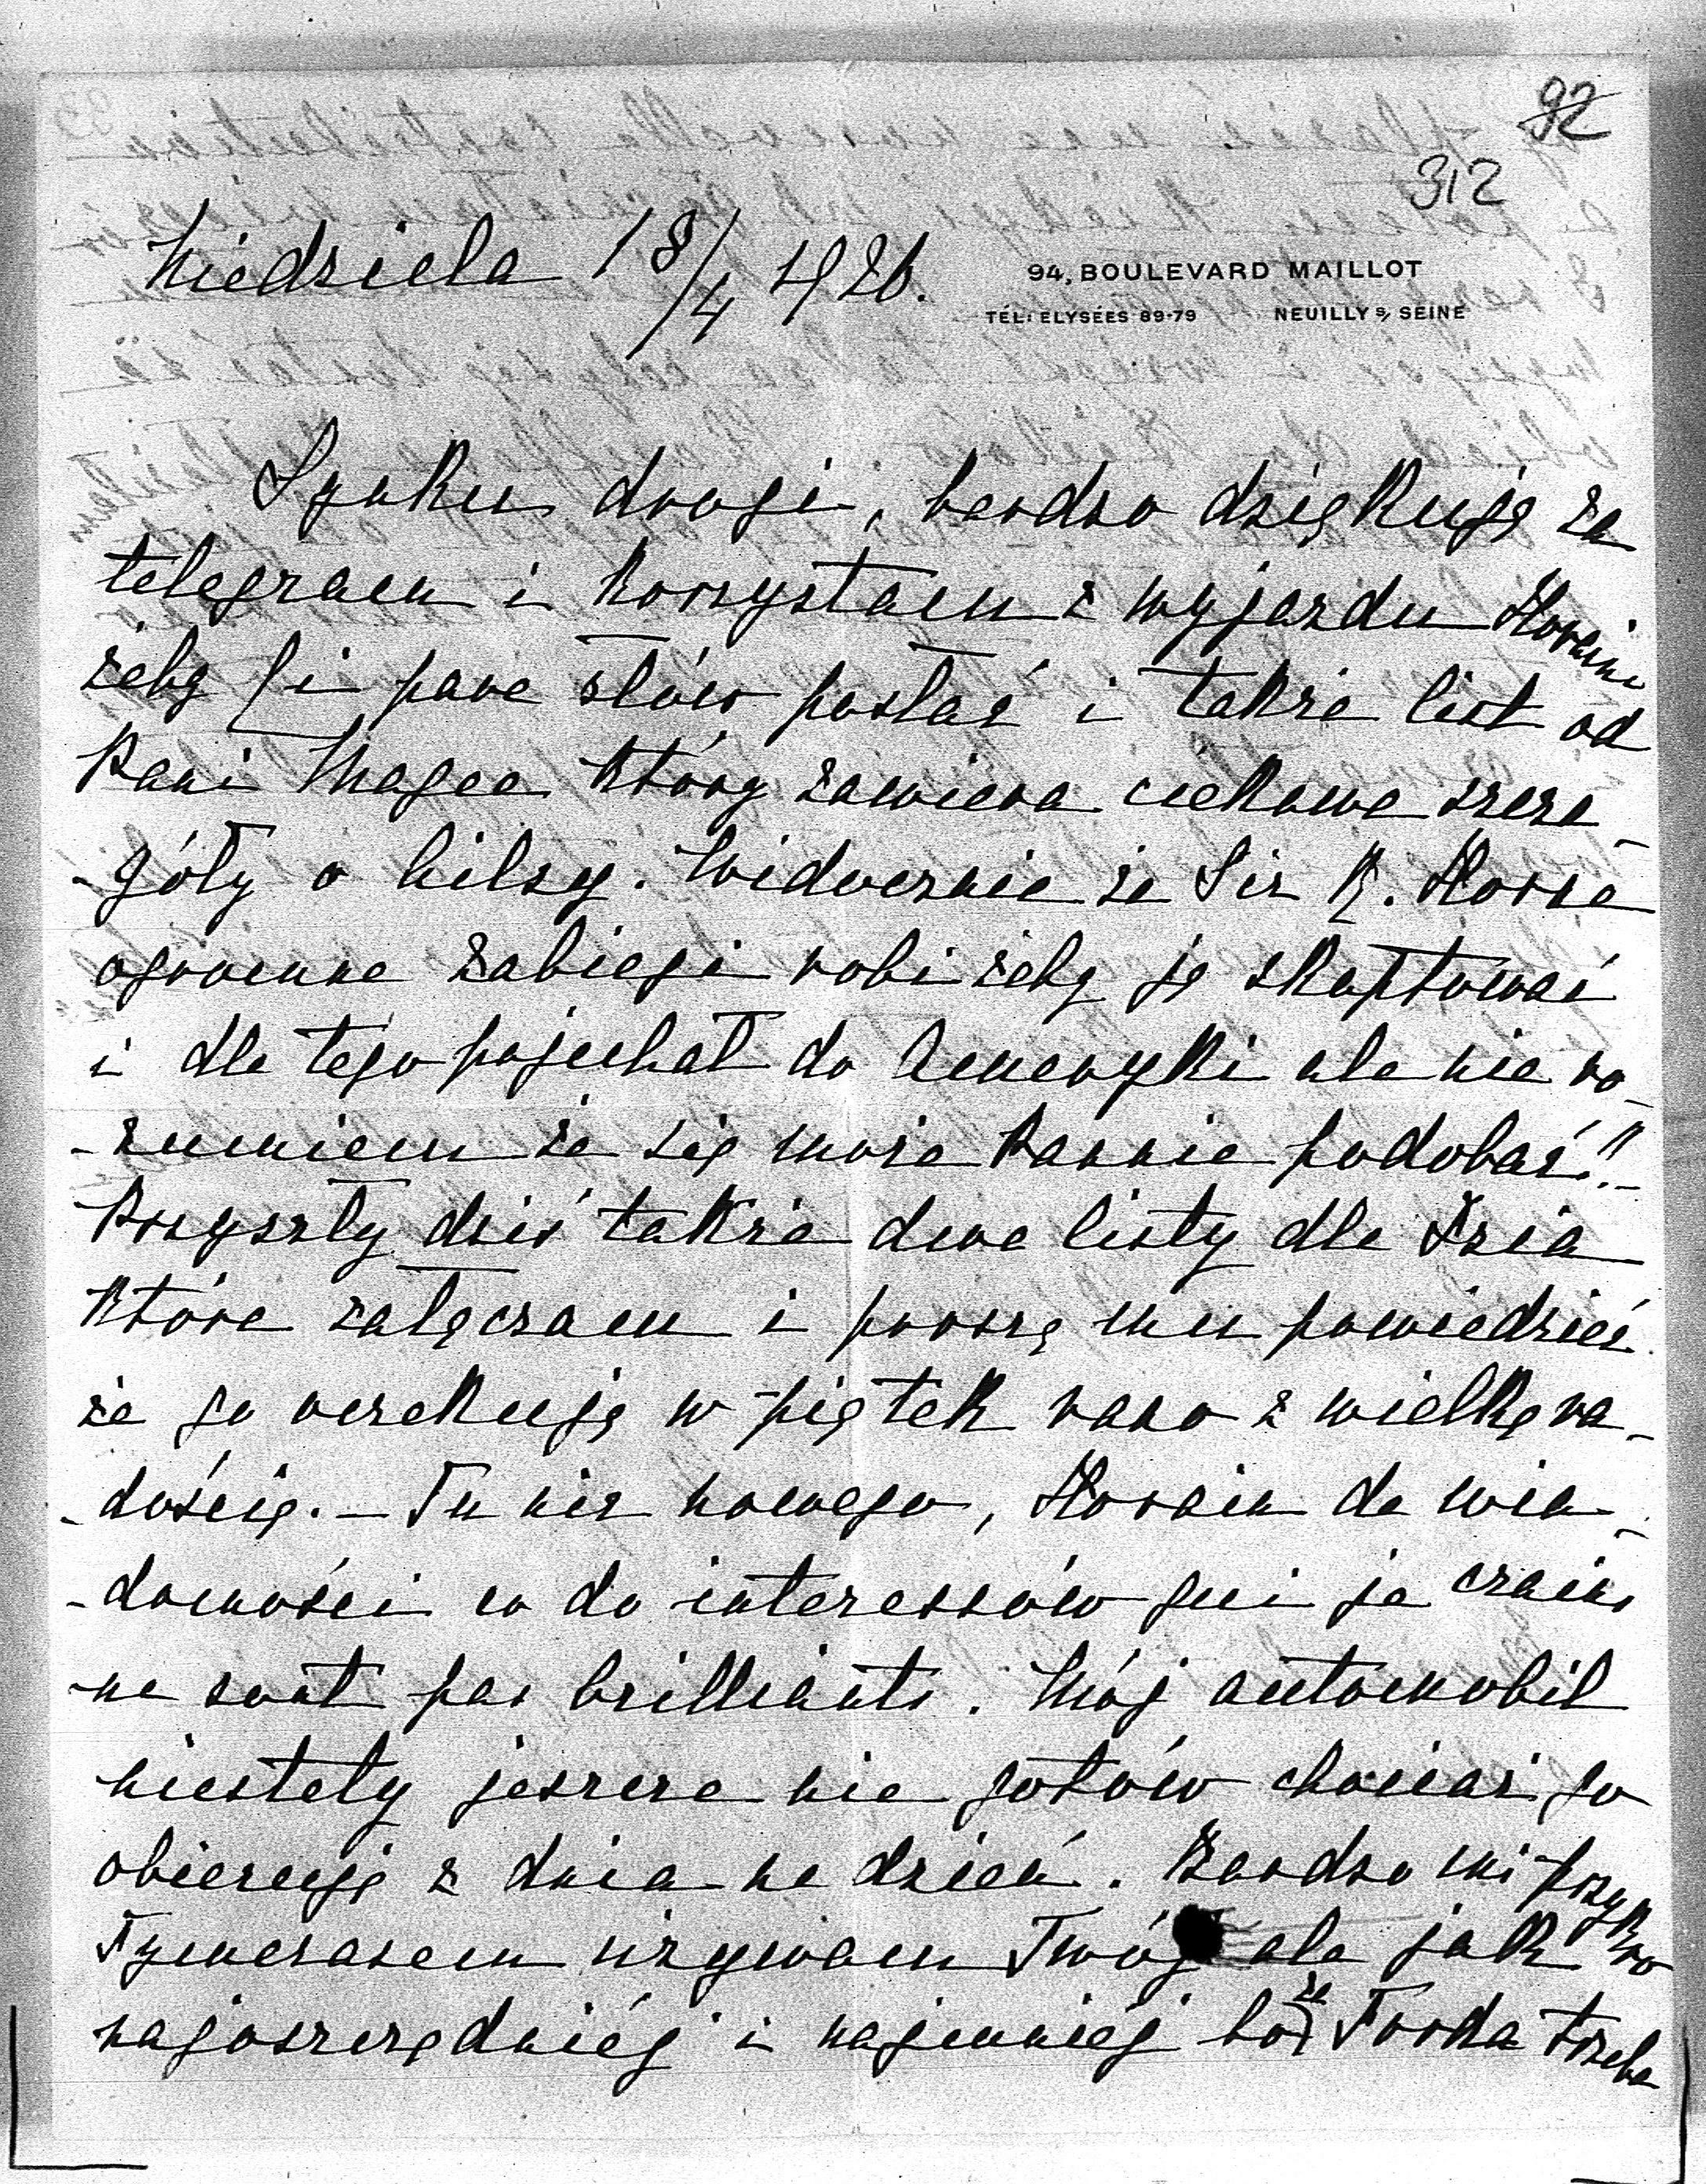 92
312
Niedziela 18/4 1926.
94, BOULEVARD MAILLOT
TÉL: ELYSÉES 89-79 NEUILLY s/ SEINE
Synku drogi, bardzo dziękuję za
telegram i korzystam z wyjazdu Horain
żeby Ci parę słów posłać i także list od
Pani Magee który zawiera ciekawe szcze-
-góły o Hilsy. Widocznie że Sir R. Horne
ogromne zabiegi robi żeby ję skaptować
i dla tego pojechał do Ameryki ale nie ro-
-zumiem że się może Pannie podobać!!
Przyszły dziś także dwa listy dla Dzia
które załęczam i proszę mu powiedzieć
że go oczekuję w piętek rano z wielkę ra-
-dościę. – Tu nic nowego, Horain da wia-
-domości co do interessów qui je crains
ne sont pas brilliants. Mój automobil
niestety jeszcze nie gotów chociaż go
obiecuję z dnia na dzień. Bardzo mi przykro
Tymczasem używam Twój ale jak
najoszczędniéj i najmniéj bo że Forda trzeba